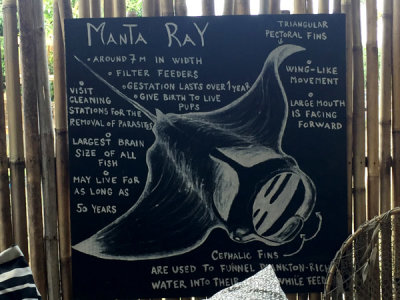 MANTA RAY
AROUND 7M IN WIDTH
FILTER FEEDERS
GESTATION LASTS OVER 1 YEAR
GIVE BIRTH TO LIVE
PUPS
VISIT
CLEANING
STATIONS FOR THE
REMOVAL OF PARASITES
LARGEST BRAIN
SIZE OF ALL
FISH
MAY LIVE FOR
AS LONG AS
50 YEARS
TRIANGULAR
PECTORAL FINS
WING-LIKE
MOVEMENT
LARGE MOUTH
IS FACING
FORWARD
CEPHALIC FINS
ARE USED TO FUNNEL PLANKTON-RICH
WATER INTO THEIR WHILE FEED